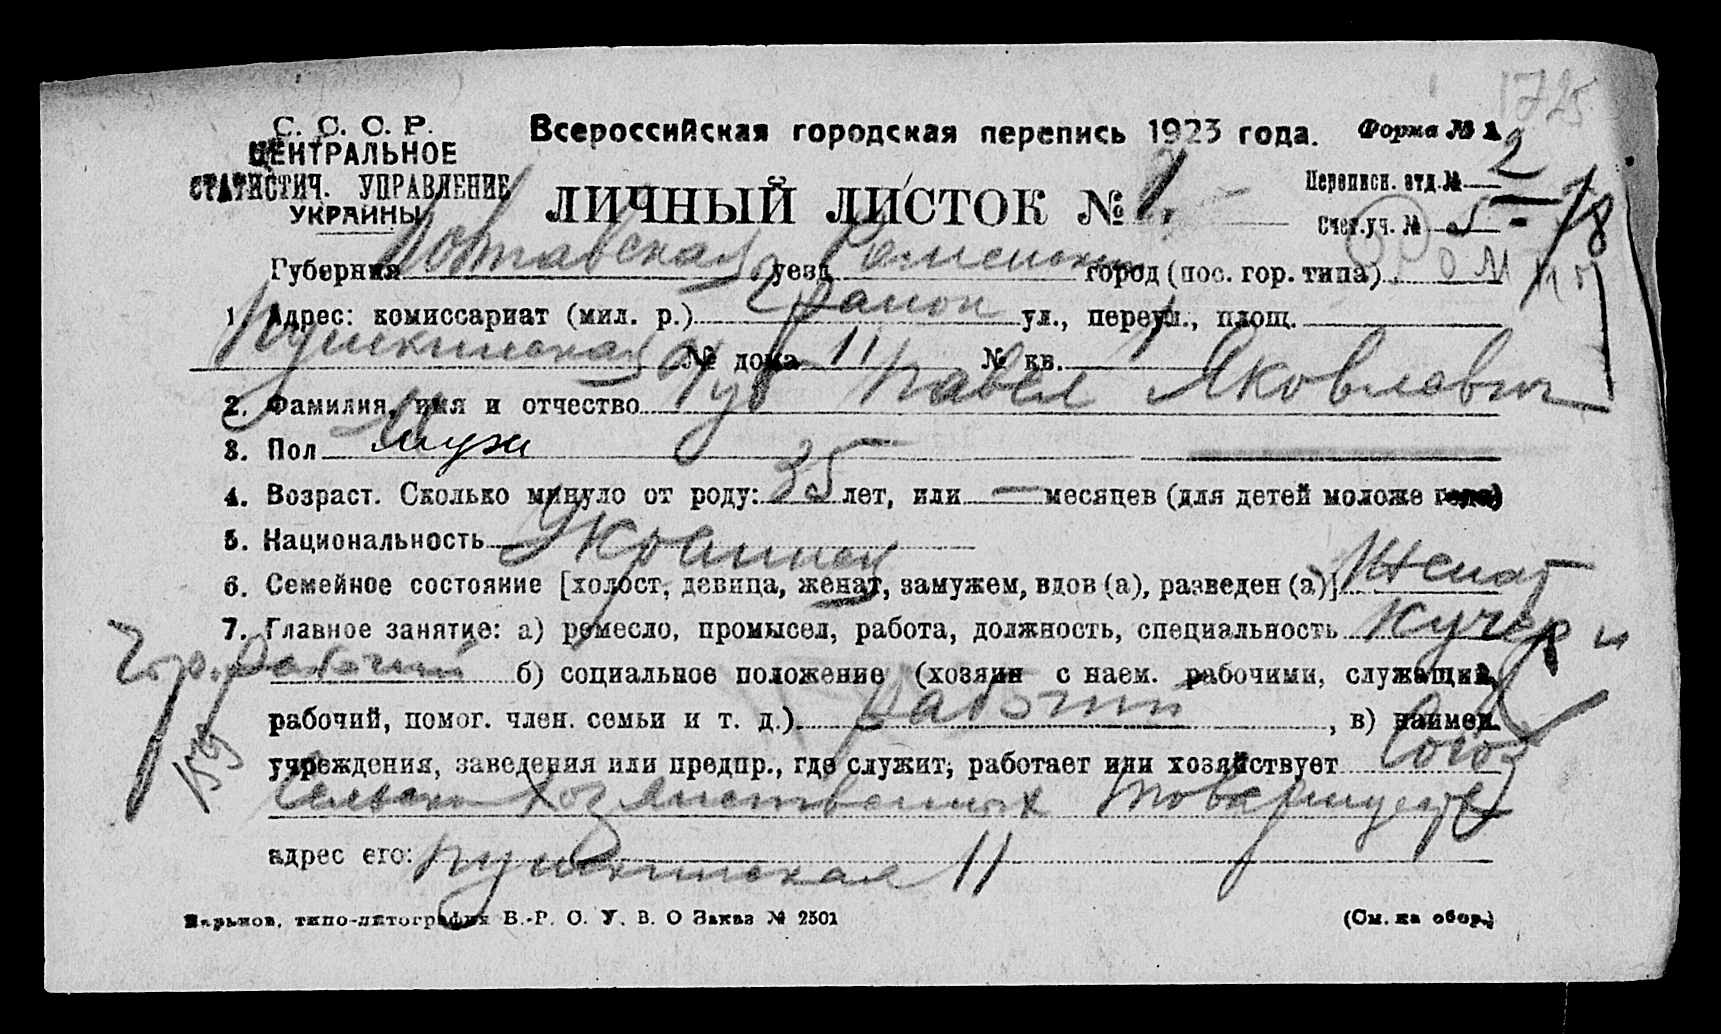 1725
С. С. С. Р.
ЦЕНТРАЛЬНОЕ
СТАТИСТИЧ. УПРАВЛЕНИЕ
УКРАИНЫ
Всероссийская городская перепись 1923 года. Форма № 1
ЛИЧНЫЙ ЛИСТОК № 1.
Переписн. отд. № 2
Счет.уч. № 5 78
Губерния Полтавская уезд Роменский город (пос. гор. типа) Ромны
1 Адрес: комиссариат (мил. р.) 2 район ул., переул., площ.
Пушкинская № дома 11 № кв. 1
2. Фамилия, имя и отчество Чуб Павел Яковлевич
3. Пол Муж
4. Возраст. Сколько минуло от роду: 35 лет, или — месяцев (для детей моложе года)
5. Национальность Украинец
6. Семейное состояние [холост, девица, женат, замужем, вдов (а), разведен (а)] Женат
7. Главное занятие: а) ремесло, промысел, работа, должность, специальность Кучер и
рабочий б) социальное положение (хозяин с наем. рабочими, служащий,
рабочий, помог. член. семьи и т. д.) рабочий , в) наимен.
учреждения, заведения или предпр., где служит, работает или хозяйствует Союз
159
Сельско Хозяйственных Товариществ
адрес его: Пушкинская 11
Харьков, типо-литография В.-Р. О. У. В. О Заказ № 2501 (См. на обор.)